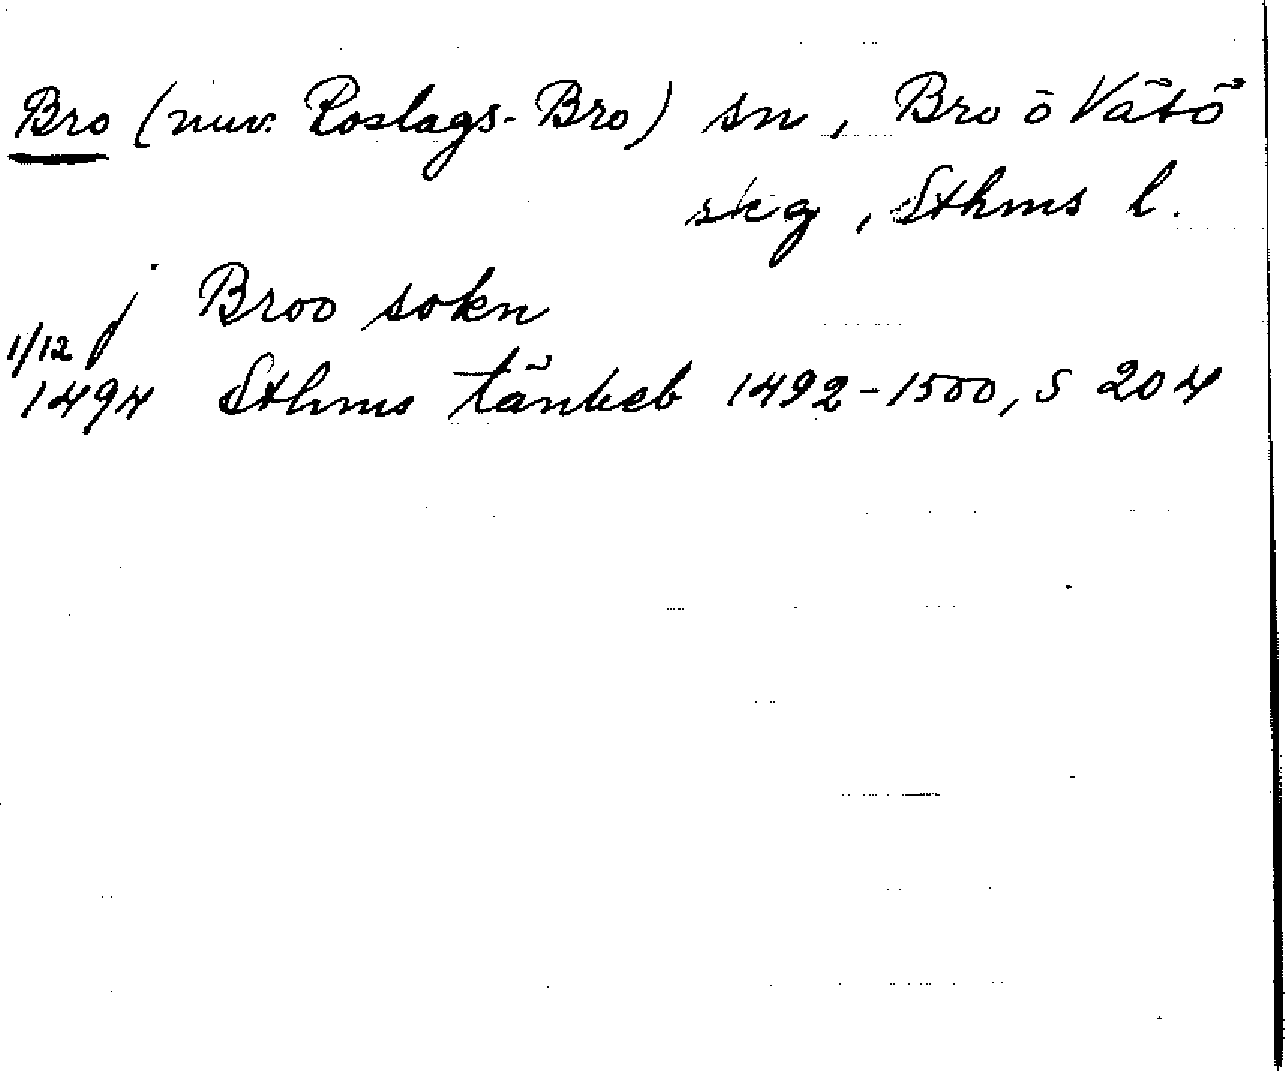 Bro (nuv. Roslags-Bro) sn, Bro ō Vätö
skg, Sthms l.
j Broo sokn
1/12
1494 Sthms tänkeb 1492-1500, s 204